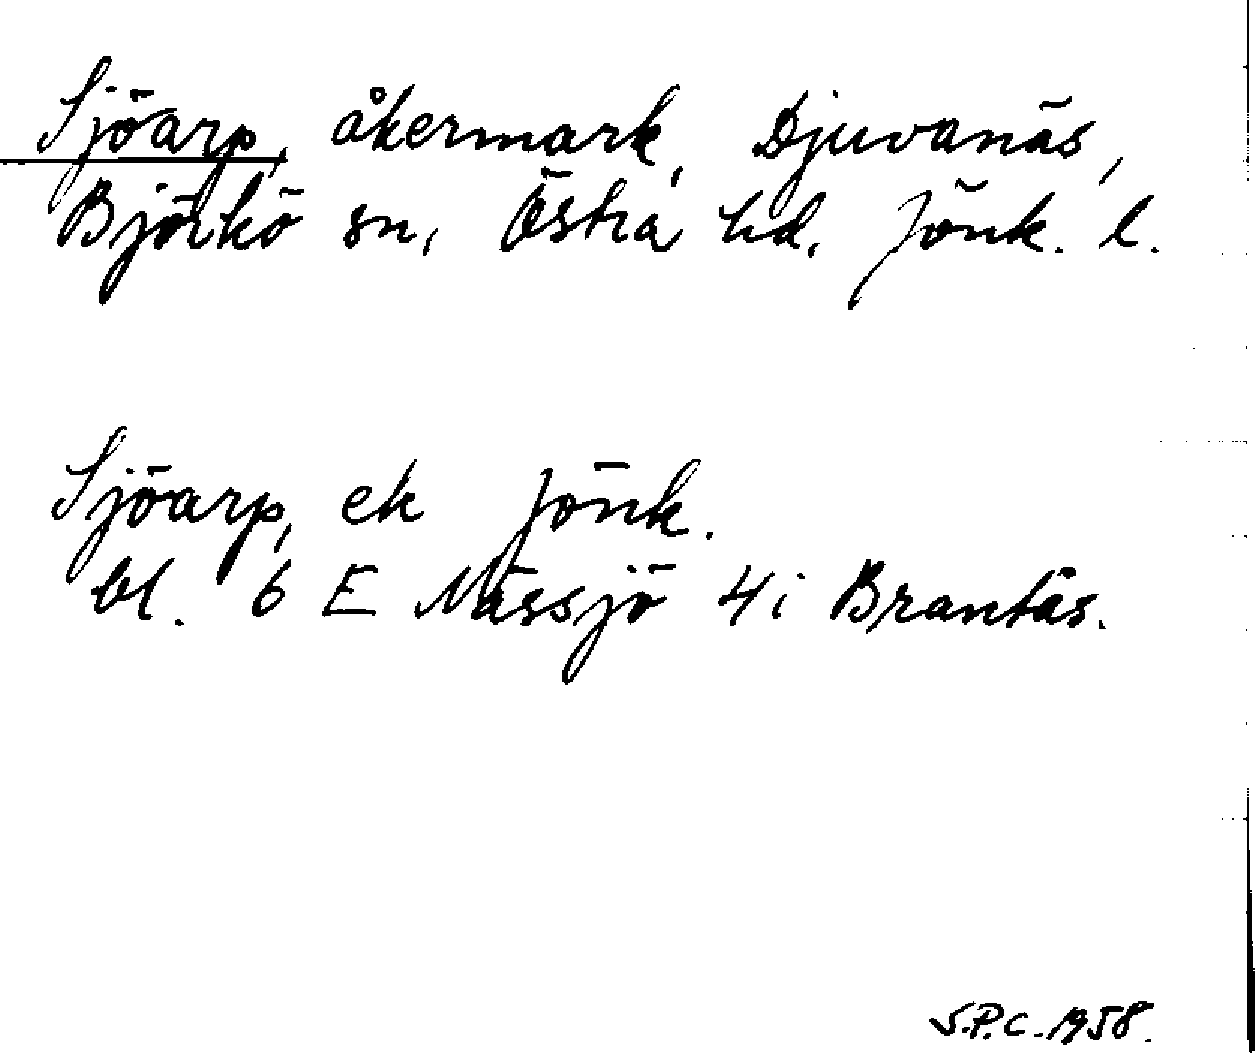 Sjöarp, åkermark, Djuvanäs,
Björkö sn, Östra hd, Jönk. l.
Sjöarp, ek Jönk.
bl. 6 E Nässjö 4i Brantås.
S.P.C. 1958.